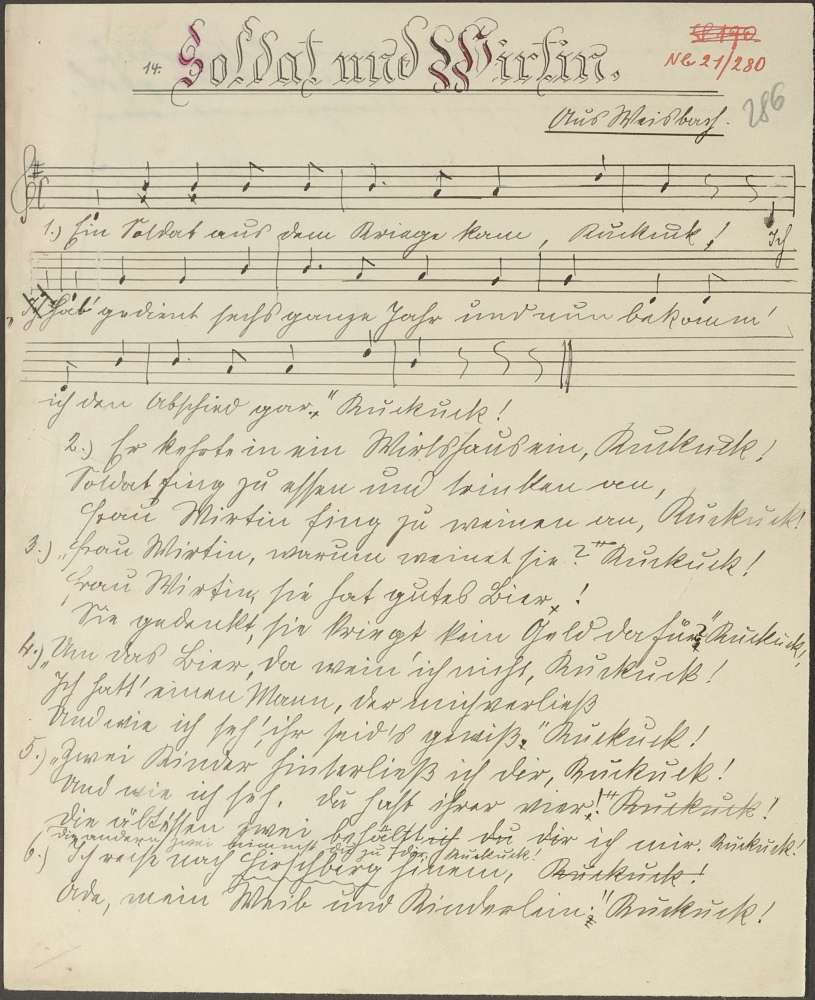 14. Soldat und Wirtin.
Nb 21/280
286
Aus Weisbach.
1.) Ein Soldat aus dem Kriege kam, Kuckuck! Ich
hab' gedient sechs ganze Jahr und nun bekomm'
ich den Abschied gar." Kuckuck!
2.) Er kehrte in ein Wirtshaus ein, Kuckuck!
Soldat fing zu essen und trinken an,
Frau Wirtin fing zu weinen an, Kuckuck!
3.) „Frau Wirtin, warum weinet sie?" Kuckuck!
Frau Wirtin, sie hat gutes Bier!
Sie gedenkt, sie kriegt kein Geld dafür?" Kuckuck!
4.) „Um das Bier, da wein' ich nicht, Kuckuck!
Ich hatt' einen Mann, der mich verließ
Und wie ich seh', ihr seid's gewiß." Kuckuck!
5.) „Zwei Kinder hinterließ ich dir, Kuckuck!
Und wie ich seh, du hast ihrer vier!" Kuckuck!
Die ältesten zwei behältst du dir ich mir. Kuckuck!
die andern zwei nimmst du zu dir. Kuckuck!
6.) Ich reise nach Hirschberg hinein, Kuckuck!
Ade, mein Weib und Kinderlein!" Kuckuck!